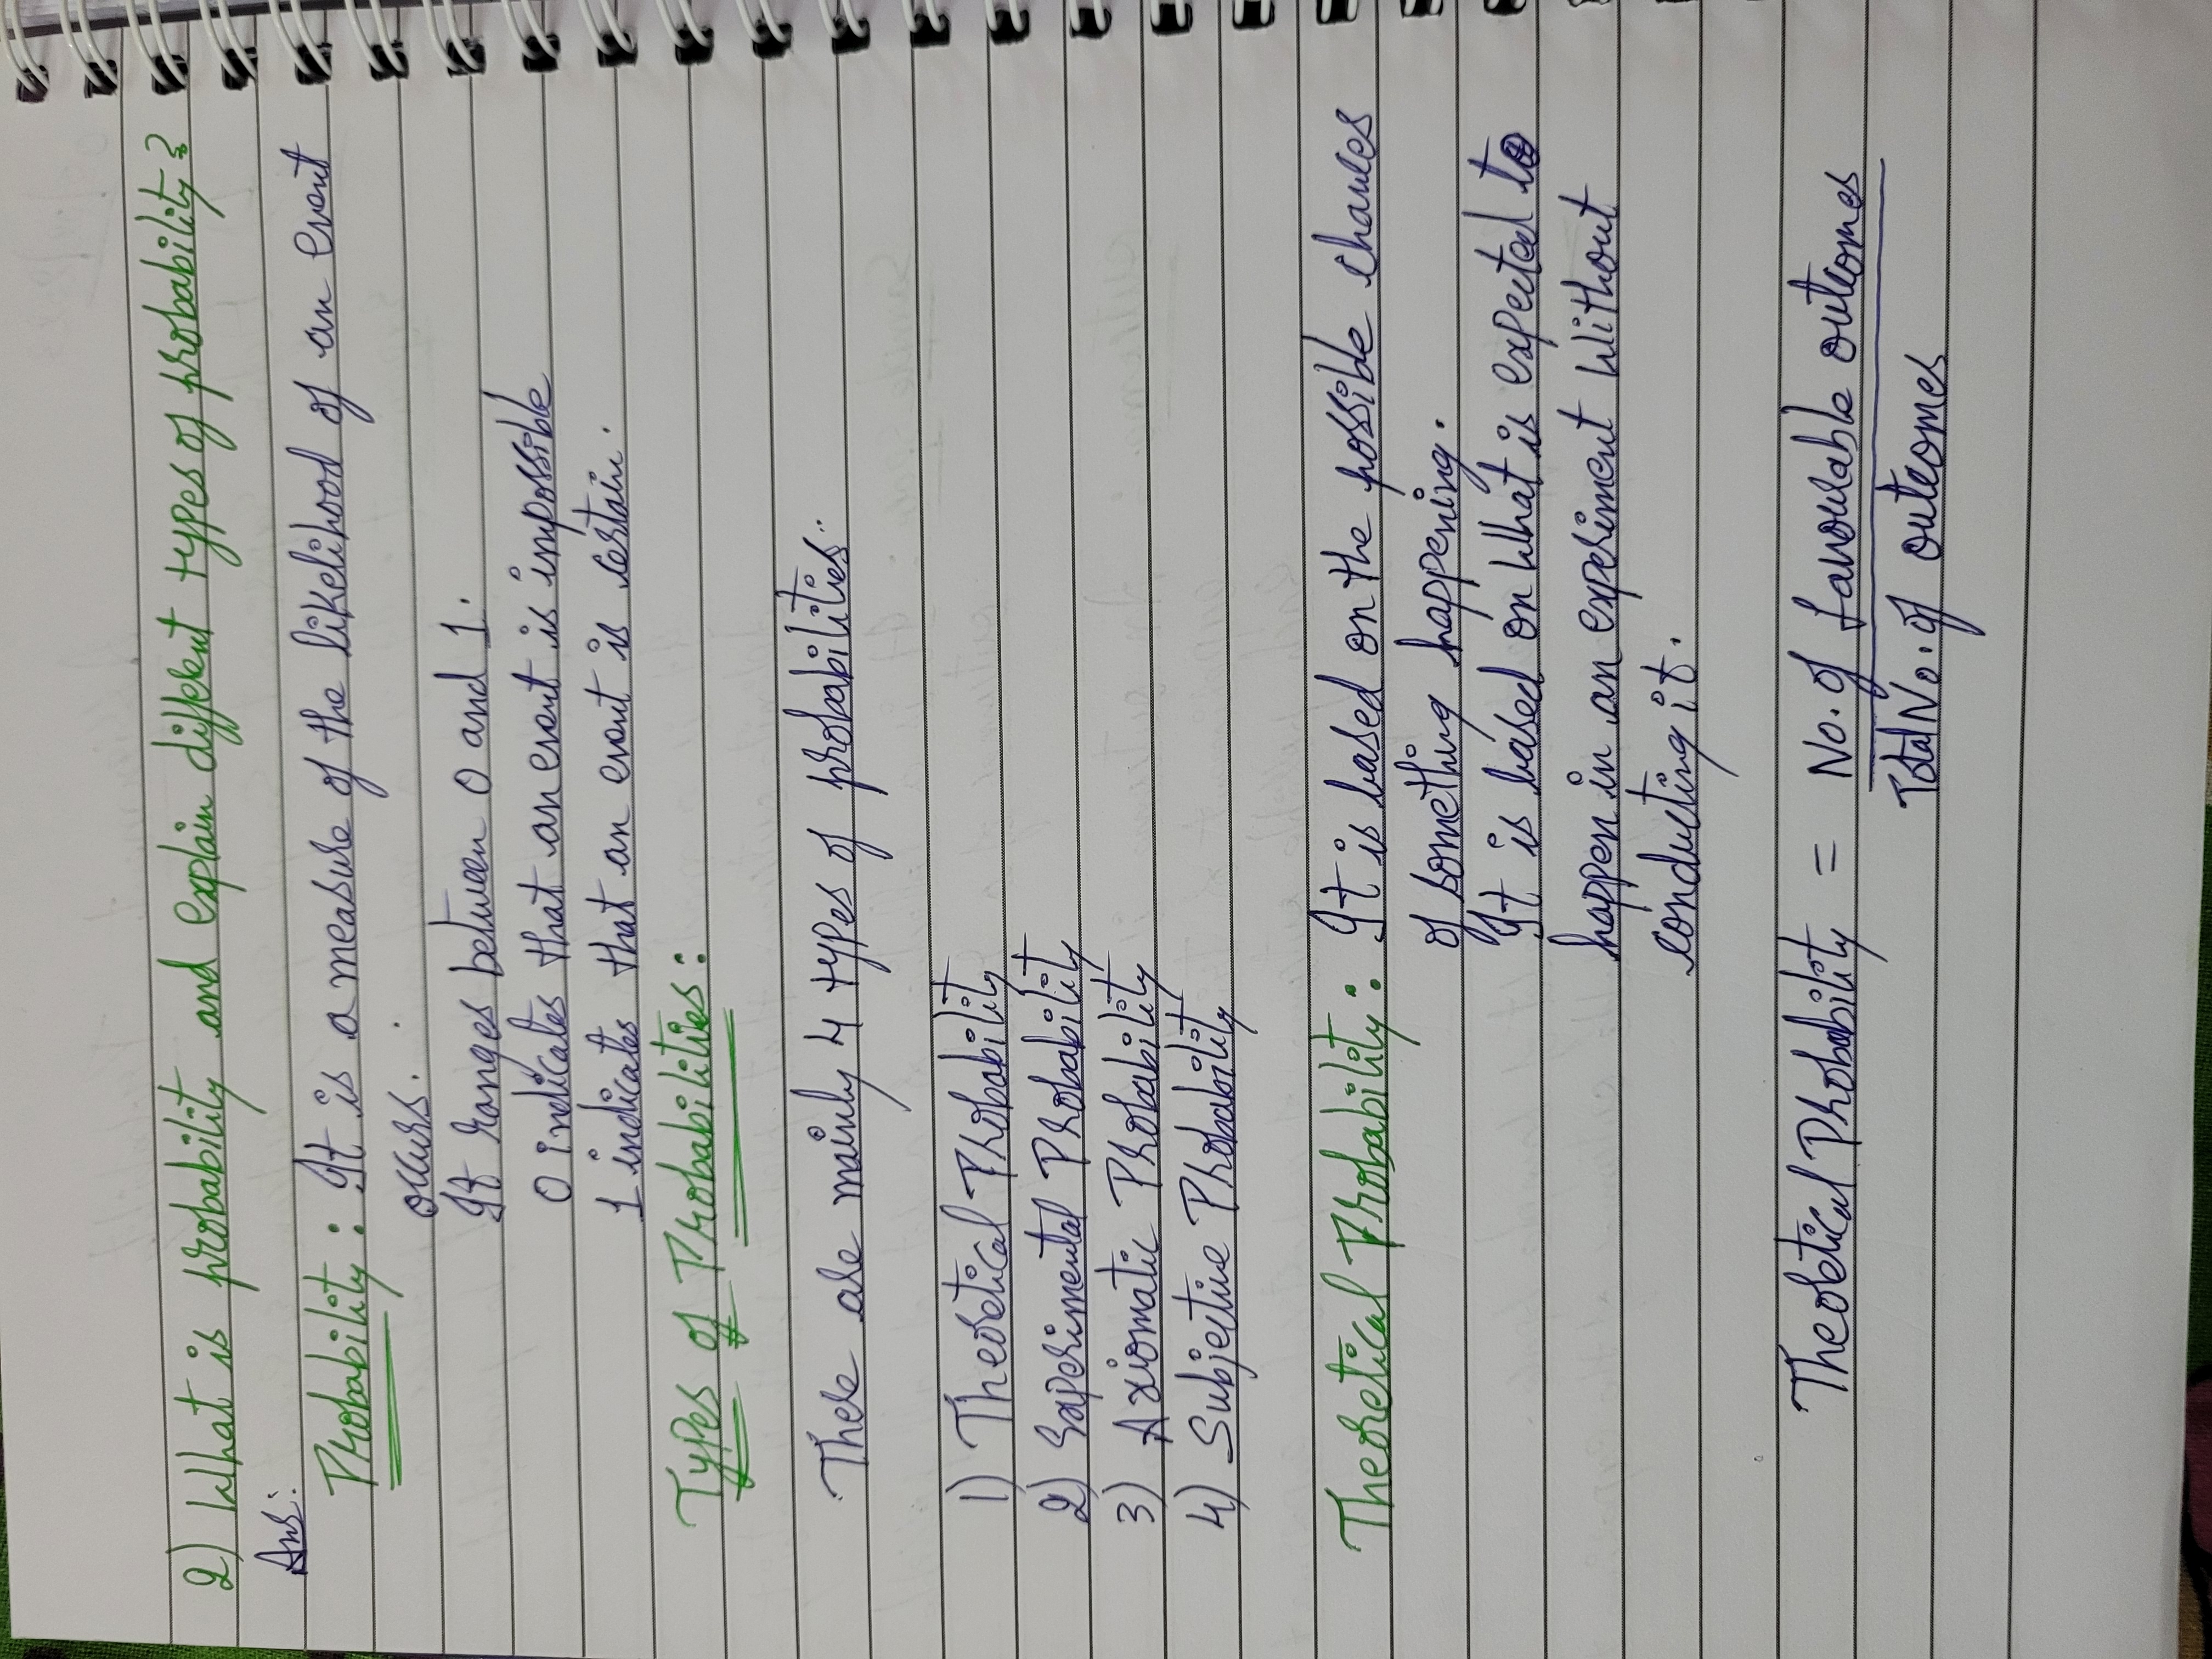 2) What is probability and explain different types of probability?
Ans:
Probability : It is a measure of the likelihood of an event
occurs.
It ranges between 0 and 1.
0 indicates that an event is impossible
1 indicates that an event is certain.
Types of Probabilities :
There are mainly 4 types of probabilities..
1) Theoretical Probability
2) Experimental Probability
3) Axiomatic Probability
4) Subjective Probability
Theoretical Probability : It is based on the possible chances
of something happening.
It is based on What is expected to
happen in an experiment Without
conducting it.
Theoretical Probability = No. of favourable outcomes
Total No. of outcomes